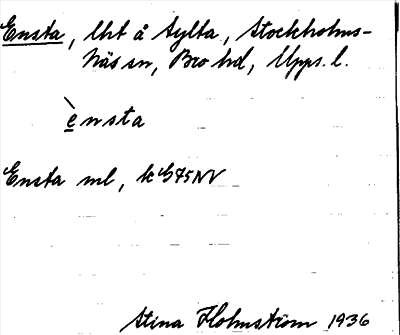 Ensta, lht å Sylta, Stockholms-
Näs sn, Bro hd, Upps. l.
ènsta
Ensta ml, k G75NV
Stina Holmström 1936